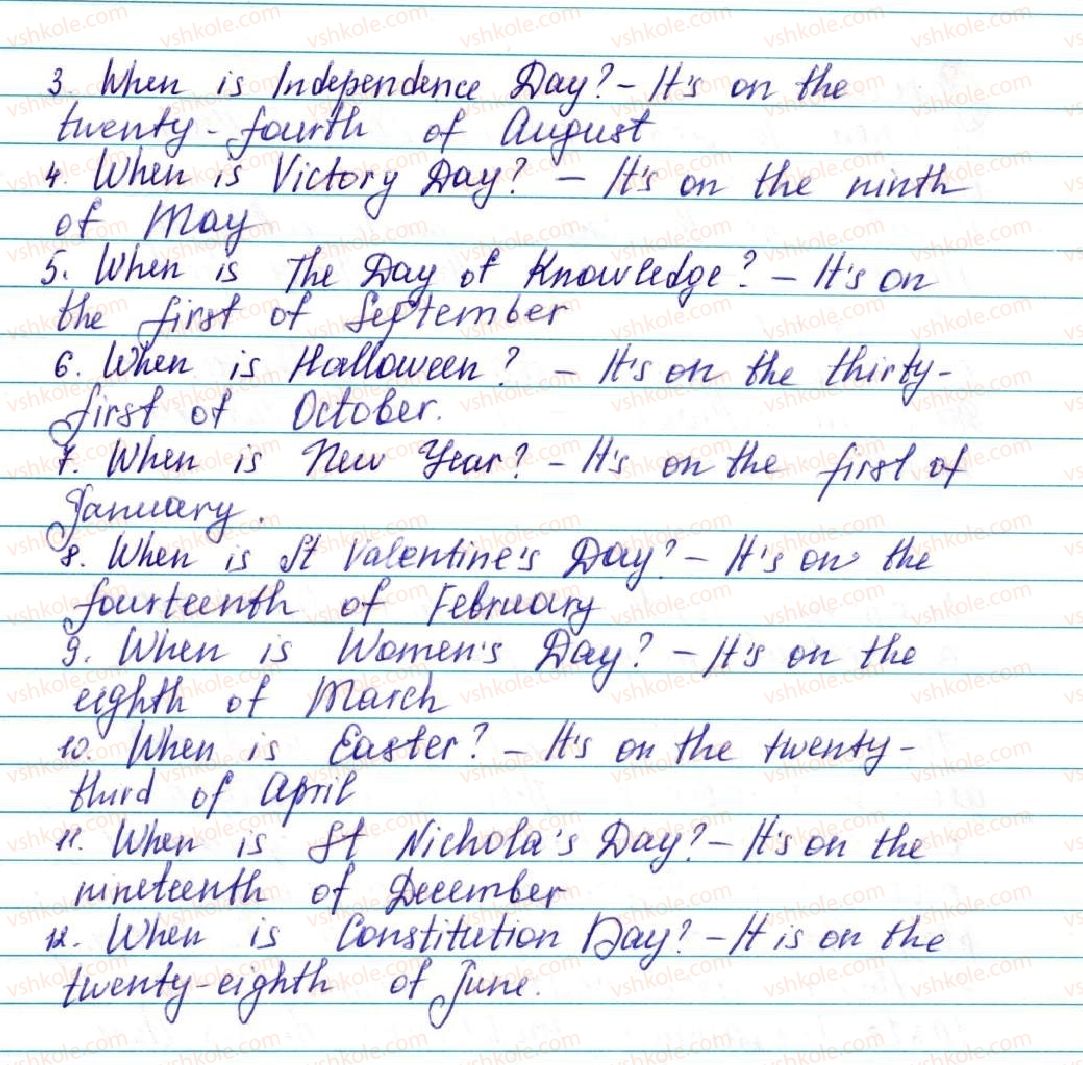 3. When is Independence Day? – It's on the
twenty-fourth of August
4. When is Victory Day? – It's on the ninth
of May
5. When is The Day of Knowledge? – It's on
the first of September
6. When is Halloween? – It's on the thirty-
first of October.
7. When is New Year? – It's on the first of
January.
8. When is St Valentine's Day? – It's on the
fourteenth of February
9. When is Women's Day? – It's on the
eighth of March
10. When is Easter? – It's on the twenty-
third of April
11. When is St Nichola's Day? – It's on the
nineteenth of December
12. When is Constitution Day? – It is on the
twenty-eighth of June.